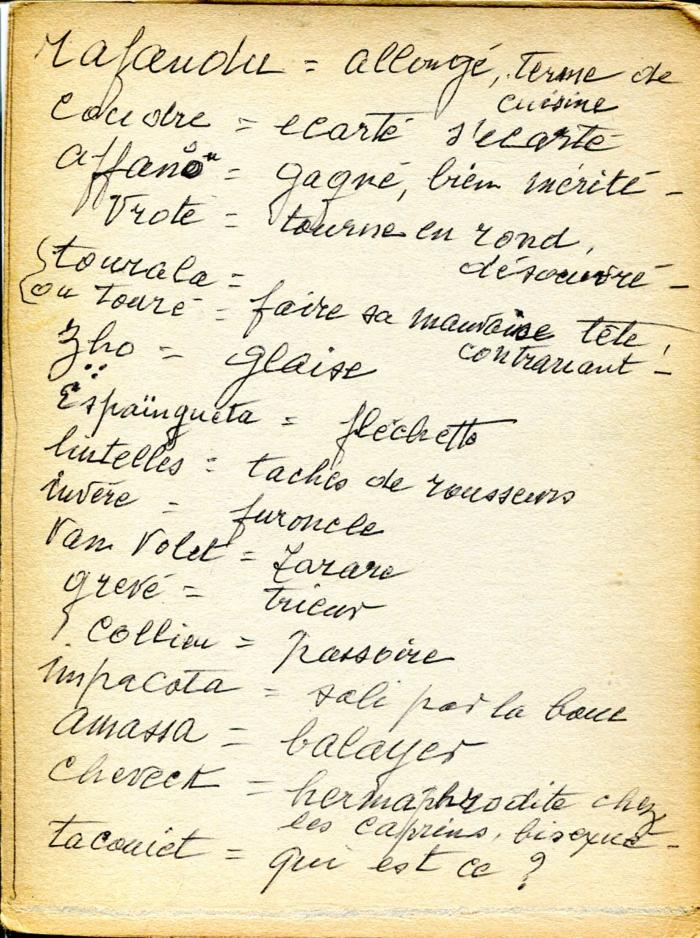 Rafandu = allongé, terme de
cuisine
coudre = ecarté s'ecarté
affanö = gagné, bien mérité -
Vrote = tourne en rond,
désoeuvré -
tourala =
ou touré = faire sa mauvaise tête,
contrariant ! -
zho = glaise
Espaïngueta = fléchette
lintelles = taches de rousseurs
invère = furoncle
Van Volet = Tarare
grevé = trieur
collieu = passoire
impacota = sali par la boue
amassa = balayer
cheveck = hermaphrodite chez
les caprins, bisexué -
tacouiet = qui est ce ?